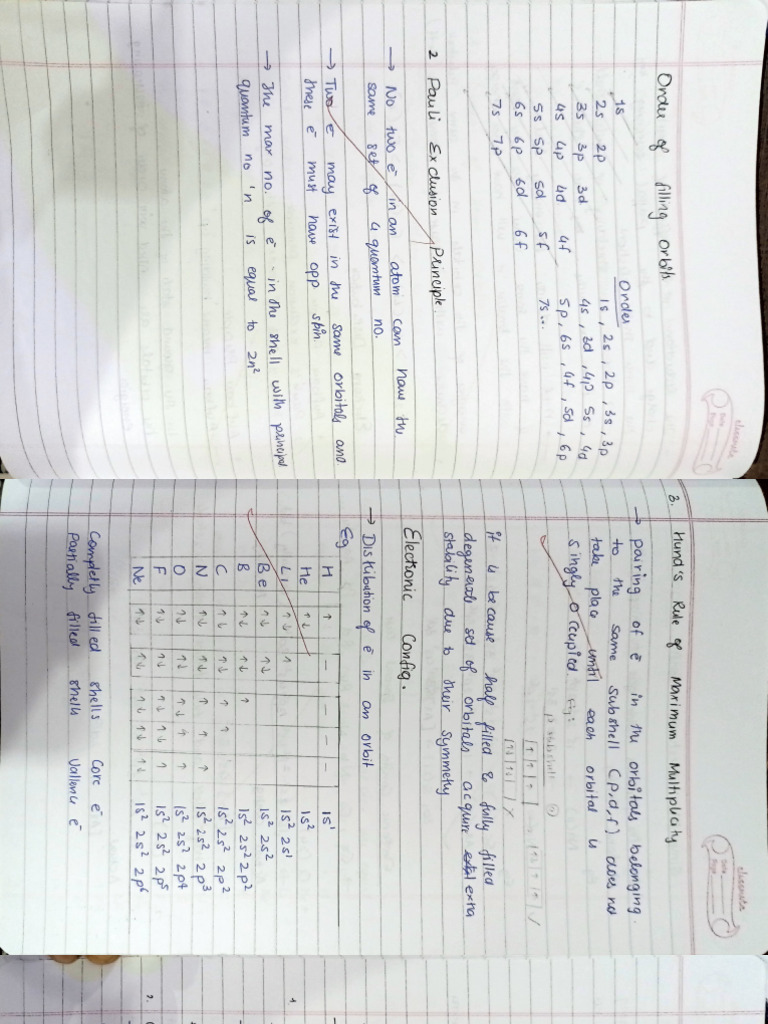 Order of filling orbits
1s
2s 2p
3s 3p 3d
4s 4p 4d 4f
5s 5p 5d 5f
6s 6p 6d 6f
7s 7p
Order
1s, 2s, 2p, 3s, 3p
4s, 3d, 4p 5s, 4d
5p, 6s, 4f, 5d, 6p
7s...
2 Pauli Exclusion Principle.
→ No two e⁻ in an atom can have the
same set of 4 quantum no.
→ Two e⁻ may exist in the same orbitals and
these e⁻ must have opp spin
→ The max no. of e⁻ - in the shell with principal
quantum no 'n' is equal to 2n²
3. Hund's Rule of Maximum Multiplicity
→ pairing of e⁻ in the orbitals belonging.
to the same subshell (p,d,f) does not
take place until each orbital is
singly occupied.
it is because half filled & fully filled
degenerate set of orbitals acquire extra
stability due to their symmetry
Electronic Config.
→ Distribution of e⁻ in an orbit
Eg
H ↑ – – – – 1s¹
He ↑↓ 1s²
Li ↑↓ ↑ 1s² 2s¹
Be ↑↓ ↑↓ 1s² 2s²
B ↑↓ ↑↓ ↑ 1s² 2s² 2p²
C ↑↓ ↑↓ ↑ ↑ 1s² 2s² 2p²
N ↑↓ ↑↓ ↑ ↑ ↑ 1s² 2s² 2p³
O ↑↓ ↑↓ ↑↓ ↑ ↑ 1s² 2s² 2p⁴
F ↑↓ ↑↓ ↑↓ ↑↓ ↑ 1s² 2s² 2p⁵
Ne ↑↓ ↑↓ ↑↓ ↑↓ ↑↓ 1s² 2s² 2p⁶
Completly filled shells Core e⁻
Partially filled shells Vallance e⁻